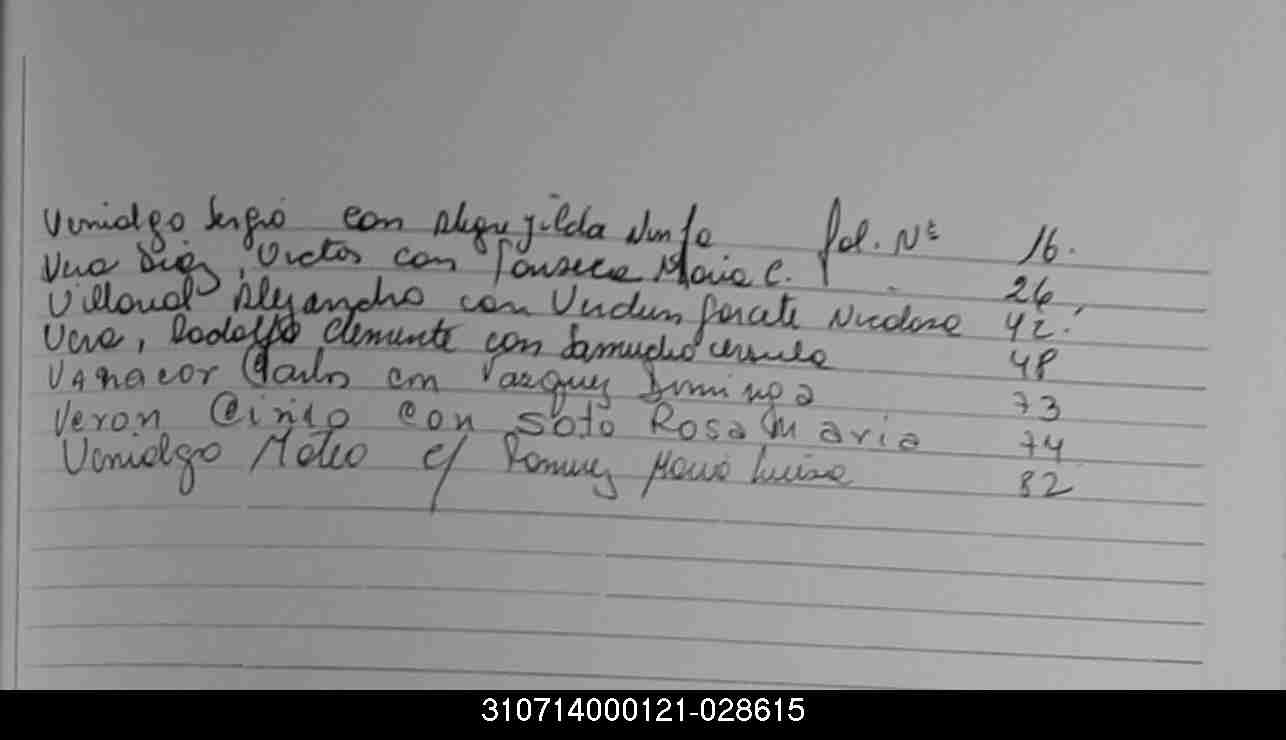 Venialgo Sergio con Alegre gilda Ninfa fol. Nº 16.
Vera Diaz, Victor con Fonseca Maria C. 26
Villarual Alejandro con Verdun Nicolasa 42.
Vera, Rodolfo Clemente con Samudio 48
VAnacor Carlos con Vazquez Dominga 73
Veron Cirilo Con Soto Rosa Maria 74
Venialgo Mateo c/ Ramirez Maria Luisa 82
310714000121-028615